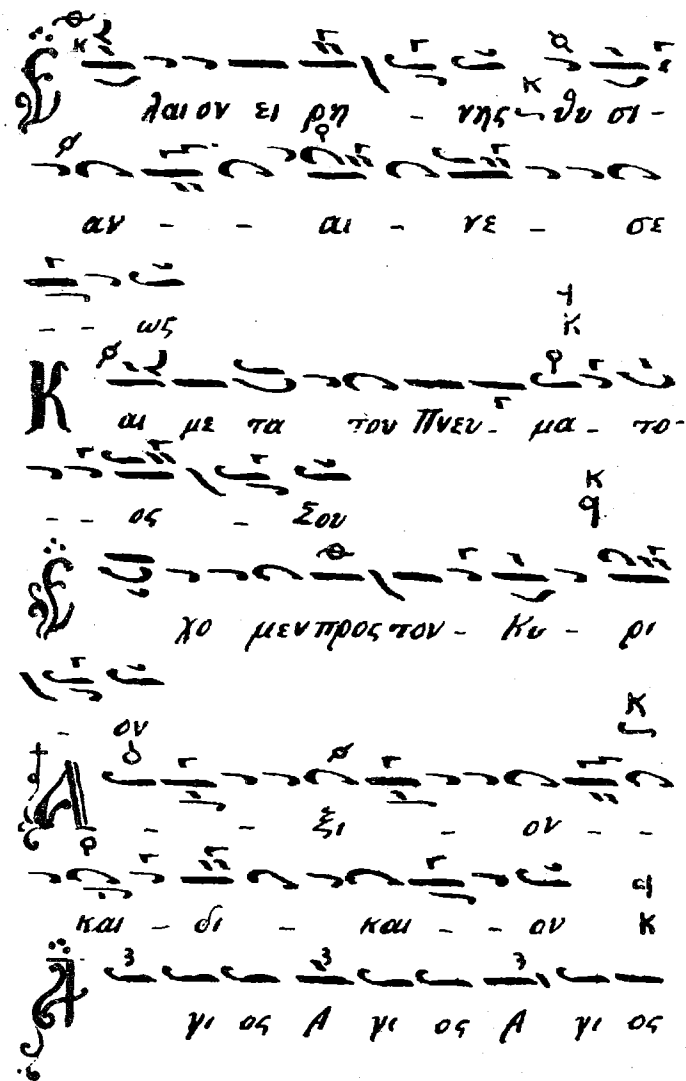 Ελαιον ει ρη - νης θυ σι -
αν - - αι - νε - σε
- - ως
Και με τα του Πνευ - μα - το -
- - ος - Σου
Εχο μεν προς τον - Κυ - ρι
- ον
Α - - ξι - ον - -
και - δι - και - - ον
Α γι ος Α γι ος Α γι ος